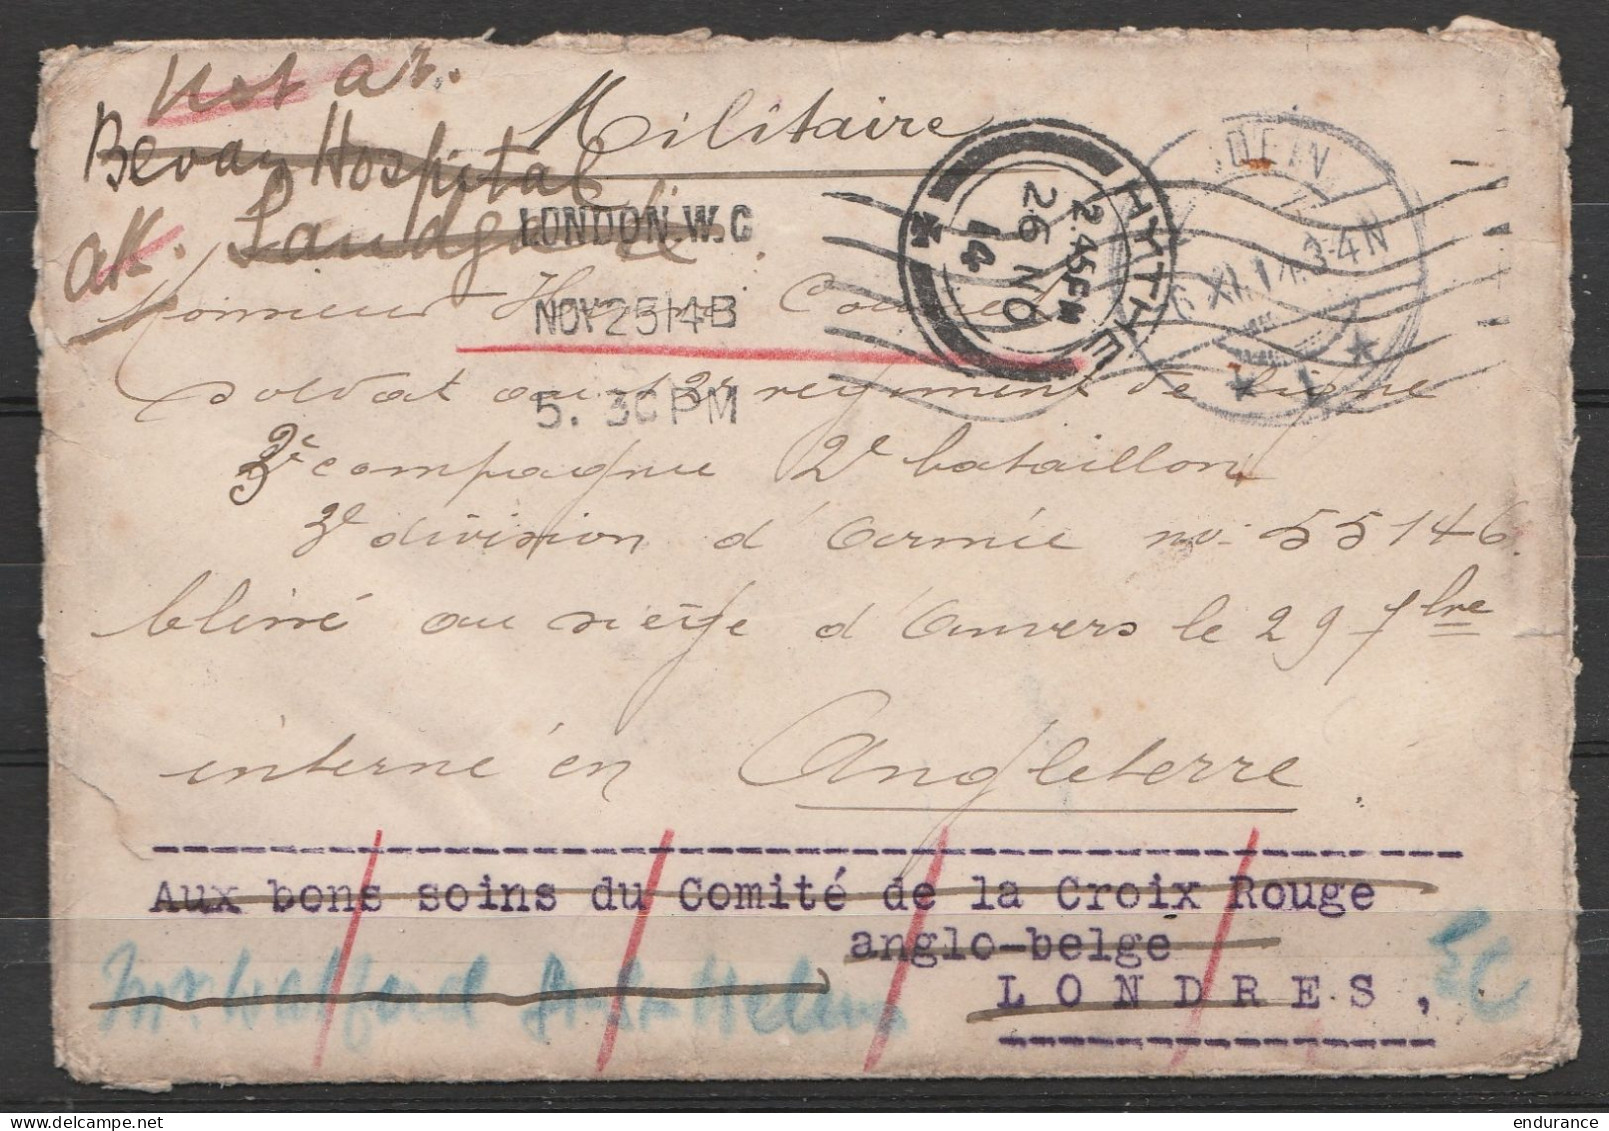 Not at.
Bevan Hospital
at. Sandgate
Militaire
LONDON. W.C
NOV 25 14 B
5. 30 PM
HYTHE
2.45 PM
26 NO
14
6 XI. 14. 3-4 N
Monsieur
soldat au régiment de ligne
3e compagnie 2e bataillon
3e division d'Armée no. 55146.
blessé au siège d'Anvers le 29 7bre
interné en Angleterre.
Aux bons soins du Comité de la Croix Rouge
anglo-belge
LONDRES,
EC
endurance